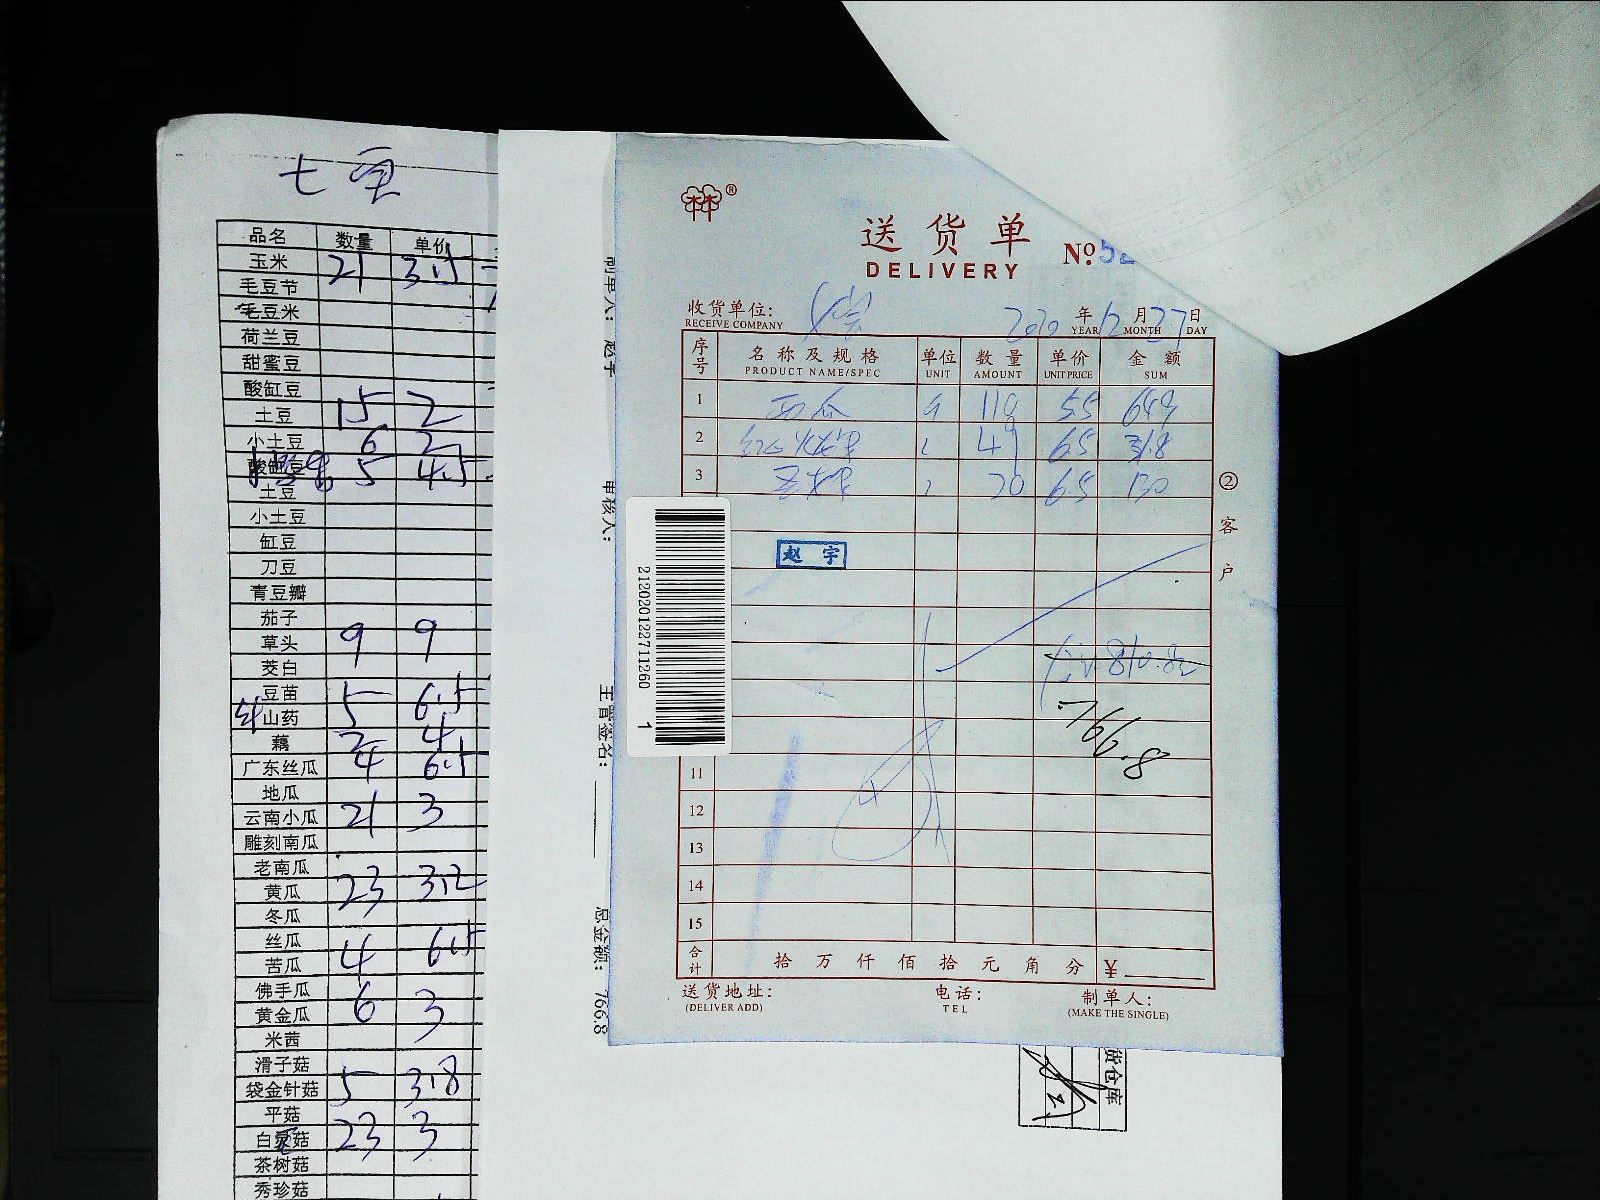 七宝
品名 数量 单价
玉米 21 3.5
毛豆节
毛豆米
荷兰豆
甜蜜豆
酸缸豆
土豆 15 2
小土豆 6 2
酸缸豆 5 4.5
土豆
小土豆
缸豆
刀豆
青豆瓣
茄子
草头 9 9
茭白
豆苗
山药 5 6.5
藕 2 4
广东丝瓜 4 6.5
地瓜
云南小瓜 21 3
雕刻南瓜
老南瓜
黄瓜 23 3.2
冬瓜
丝瓜
苦瓜 4 6.5
佛手瓜
黄金瓜 6 3
米茜
滑子菇
袋金针菇 5 3.8
平菇
白灵菇 23 3
茶树菇
秀珍菇
制单人： 赵宇
审核人：
主管签名：
总金额： 766.8
®
送货单
DELIVERY
No. 52
收货单位：
RECEIVE COMPANY
2020 年 12 月 27 日
YEAR MONTH DAY
序号 名称及规格 单位 数量 单价 金额
PRODUCT NAME/SPEC UNIT AMOUNT UNIT PRICE SUM
1 西瓜 118 5.5 649
2 6.5
3 20 6.5 130
赵宇
766.8
11
12
13
14
15
合计 拾 万 仟 佰 拾 元 角 分 ¥
送货地址：
(DELIVER ADD)
电话：
TEL
制单人：
(MAKE THE SINGLE)
②客户
2120201227111260 1
货仓库